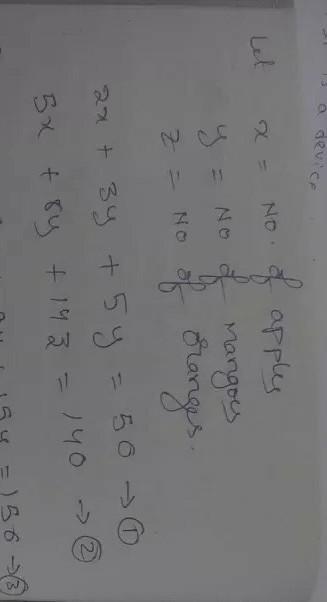 is a device
Let x = No. of apply
y = No of mangoes
z = No of oranges.
2x + 3y + 5y = 56 → ①
5x + 8y + 14z = 140 → ②
15y = 156 → ③